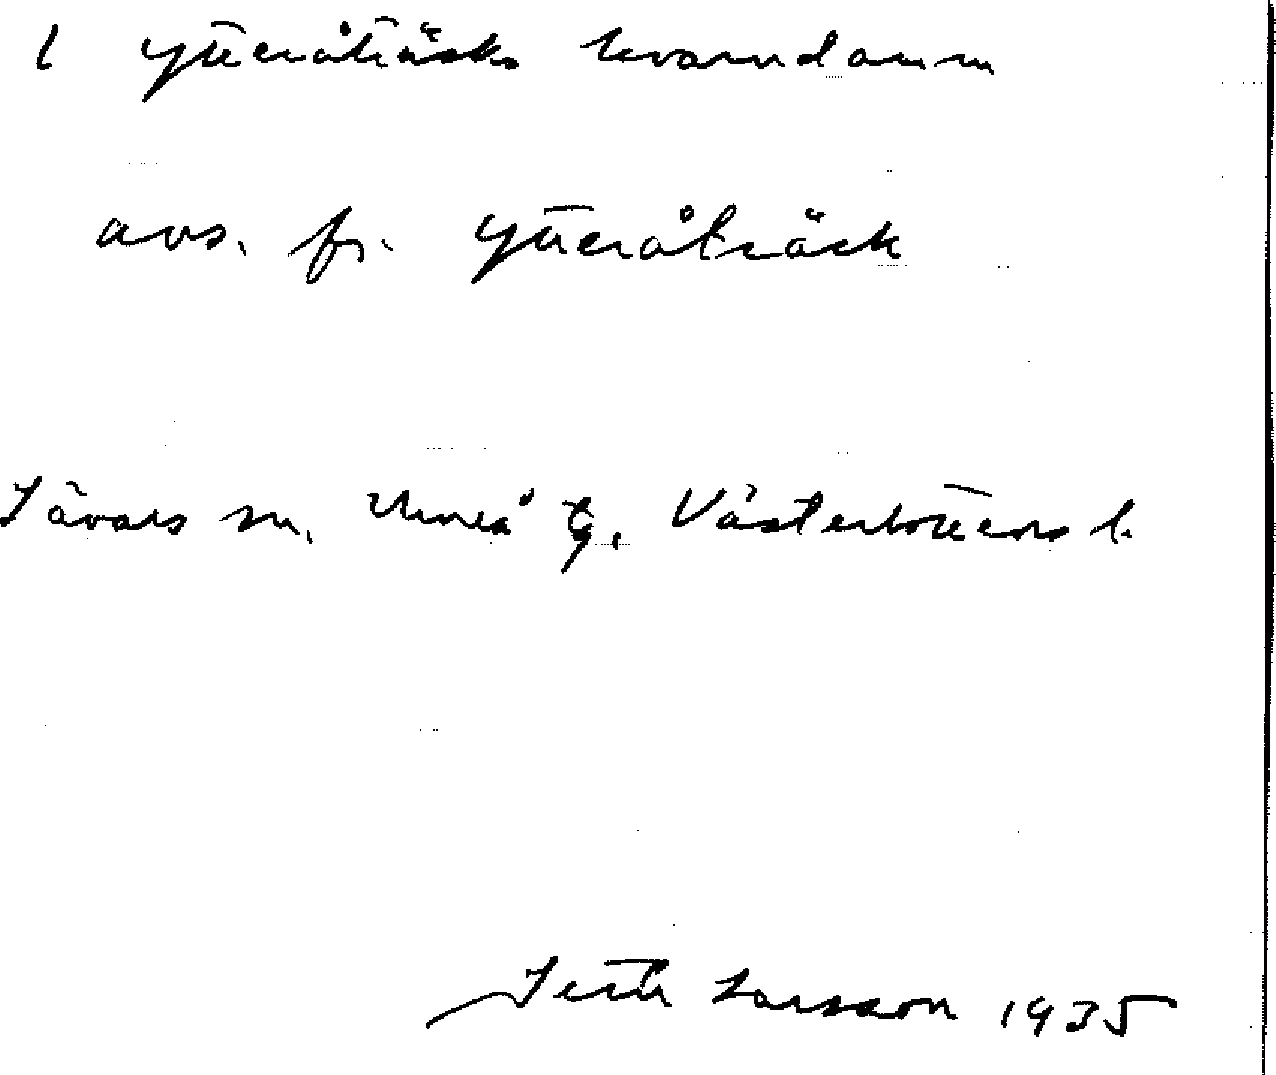 l Ytteråträsks kvarndamm
avs. fr. Ytteråträsk
Sävars sn. Umeå tg. Västerbottens l.
Seth Larsson 1935